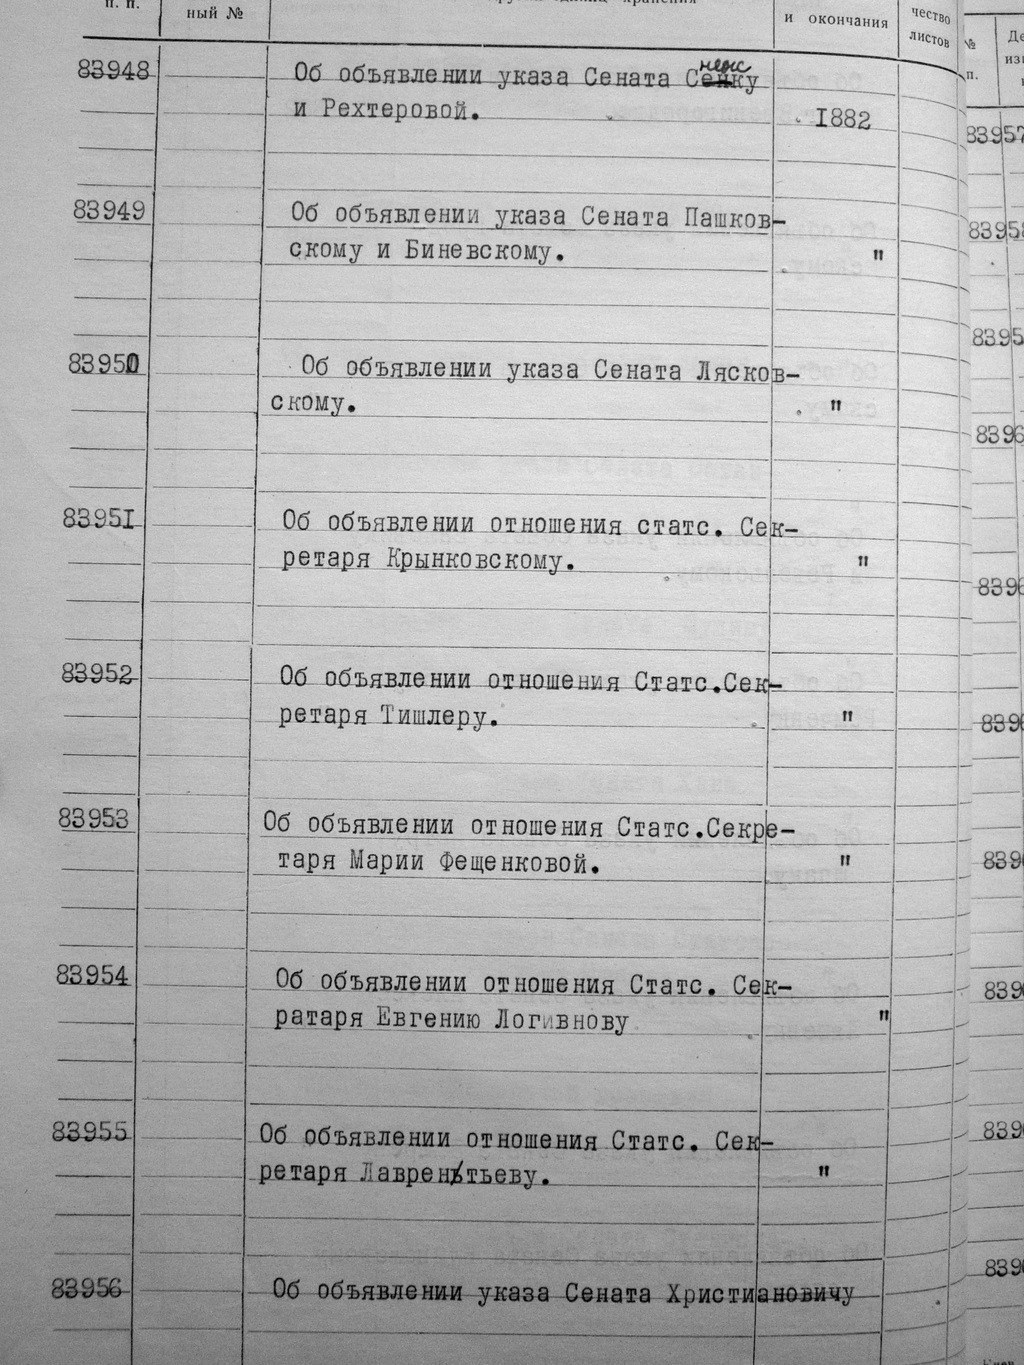 п. п.
ный №
и окончания
чество
листов
83948 Об объявлении указа Сената Сенку
и Рехтеровой. 1882
83949 Об объявлении указа Сената Пашков-
скому и Биневскому. "
83950 Об объявлении указа Сената Лясков-
скому. "
83951 Об объявлении отношения статс. Сек-
ретаря Крынковскому. "
83952 Об объявлении отношения Статс.Сек-
ретаря Тишлеру. "
83953 Об объявлении отношения Статс.Секре-
таря Марии Фещенковой. "
83954 Об объявлении отношения Статс. Сек-
ратаря Евгению Логивнову "
83955 Об объявлении отношения Статс. Сек-
ретаря Лаврентьеву. "
83956 Об объявлении указа Сената Христиановичу
№
п.
83957